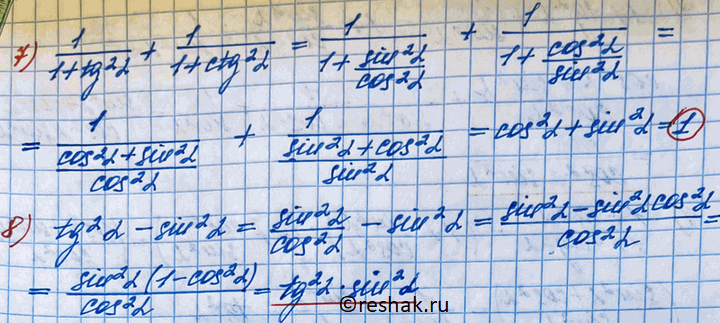 7) 1/(1+tg²α) + 1/(1+ctg²α) = 1/(1+sin²α/cos²α) + 1/(1+cos²α/sin²α) =
= 1/((cos²α+sin²α)/cos²α) + 1/((sin²α+cos²α)/sin²α) = cos²α+sin²α=1
8) tg²α-sin²α = sin²α/cos²α - sin²α = (sin²α-sin²αcos²α)/cos²α =
= sin²α(1-cos²α)/cos²α = tg²α·sin²α
©reshak.ru